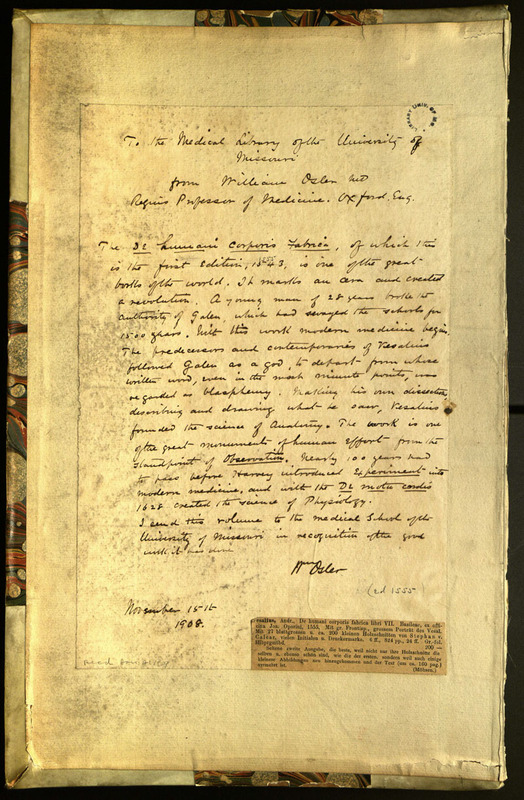 LIBRARY UNIV. OF MO.
To the Medical Library of the University of
Missouri
from William Osler MD
Regius Professor of Medicine. Oxford. Eng.
The De humani corporis fabrica, of which this
is the first edition, 1543, is one of the great
books of the world. It marks an era and created
a revolution. A young man of 28 years broke the
authority of Galen, which had swayed the schools for
1500 years. With this work modern medicine begins.
The predecessors and contemporaries of Vesalius
followed Galen as a god, to depart from whose
written word, even in the most minute points, was
regarded as blasphemy. Making his own dissections,
describing and drawing what he saw, Vesalius
founded the science of Anatomy. The work is one
of the great monuments of human effort from the
standpoint of Observation. Nearly 100 years had
to pass before Harvey introduced Experiment into
modern medicine, and with the De motu cordis
1628 created the science of Physiology.
I send this volume to the Medical School of the
University of Missouri in recognition of the good
work it has done
Wm Osler
(ed 1555
November 15th
1908.
Vesalius, Andr., De humani corporis fabrica libri VII. Basileae, ex officina Joa. Oporini, 1555. Mit gr. Frontisp., grossem Porträt des Vesal.
Mit 27 blattgrossen u. ca. 200 kleinen Holzschnitten von Stephan v.
Calcar, vielen Initialen u. Druckermarke. 6 ff., 824 pp., 24 ff. Gr.-fol.
Hllbprgmtbd. 200 —
Schöne zweite Ausgabe, die beste, weil nicht nur ihre Holzschnitte die
selben u. ebenso schön sind, wie die der ersten, sondern weil auch einige
kleinere Abbildungen neu hinzugekommen und der Text (um ca. 160 pag.)
vermehrt ist.